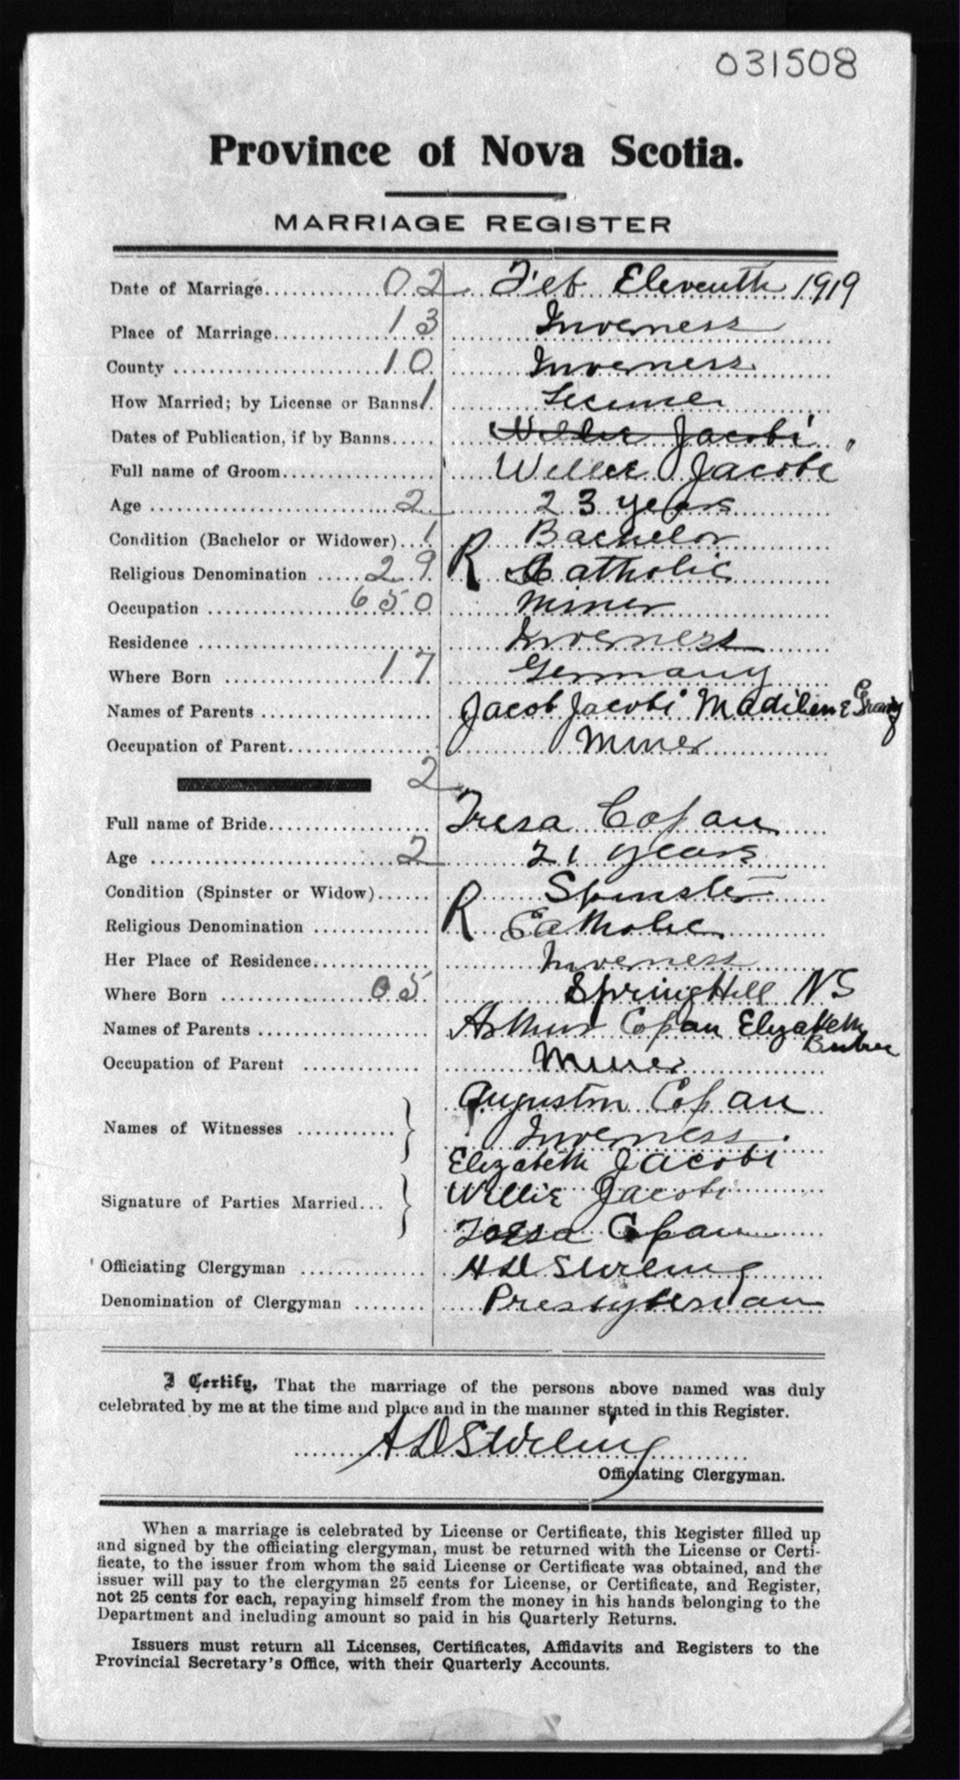 031508
Province of Nova Scotia.
MARRIAGE REGISTER
Date of Marriage 02 Feb Eleventh 1919
Place of Marriage 13 Inverness
County 10 Inverness
How Married; by License or Banns 1 License
Dates of Publication, if by Banns Willie Jacobi
Full name of Groom Willie Jacobi
Age 2 23 years
Condition (Bachelor or Widower) 1 Bachelor
Religious Denomination 29 R Catholic
Occupation 650 Miner
Residence Inverness
Where Born 17 Germany
Names of Parents Jacob Jacobi Madilene
Occupation of Parent Miner
2
Full name of Bride Tresa Copan
Age 2 21 years
Condition (Spinster or Widow) Spinster
Religious Denomination R Catholic
Her Place of Residence Inverness
Where Born 05 SpringHill NS
Names of Parents Arthur Copan Elizabeth
Occupation of Parent Miner
Names of Witnesses Augustin Copan
Inverness
Elizabeth Jacobi
Signature of Parties Married Willie Jacobi
Copan
Officiating Clergyman A D Stirling
Denomination of Clergyman Presbyterian
I Certify, That the marriage of the persons above named was duly
celebrated by me at the time and place and in the manner stated in this Register.
A D Stirling
Officiating Clergyman.
When a marriage is celebrated by License or Certificate, this Register filled up
and signed by the officiating clergyman, must be returned with the License or Certi-
ficate, to the issuer from whom the said License or Certificate was obtained, and the
issuer will pay to the clergyman 25 cents for License, or Certificate, and Register,
not 25 cents for each, repaying himself from the money in his hands belonging to the
Department and including amount so paid in his Quarterly Returns.
Issuers must return all Licenses, Certificates, Affidavits and Registers to the
Provincial Secretary's Office, with their Quarterly Accounts.